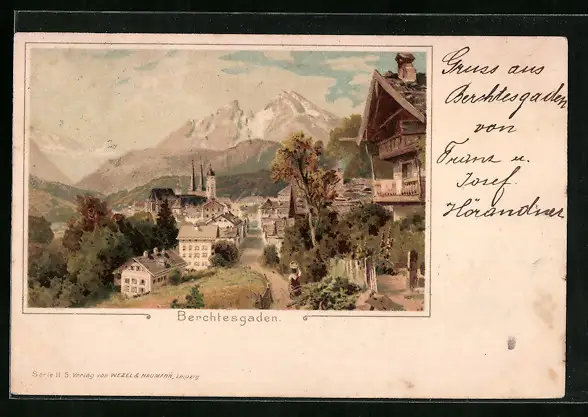 Gruss aus
Berchtesgaden
von
Franz u.
Josef
Hörandner
Berchtesgaden.
Serie II 5. Verlag von WEZEL & NAUMANN, Leipzig